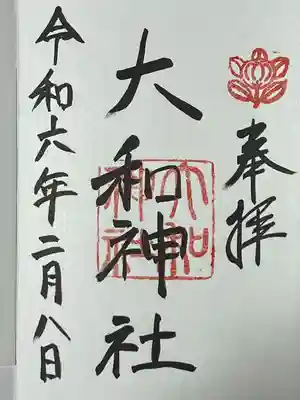 奉拝
大和神社
大和神社
令和六年二月八日